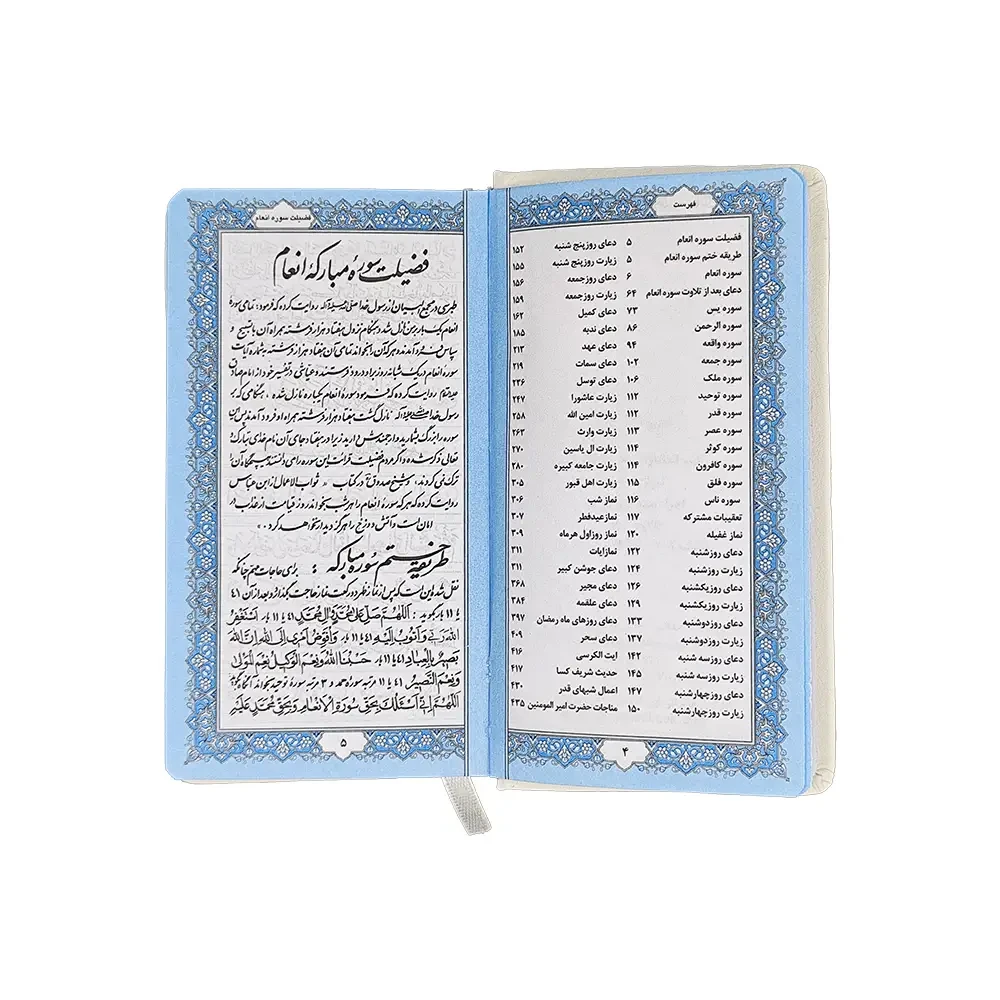 فهرست
فضیلت سوره انعام ۵ دعای روزپنج شنبه ۱۵۲
طریقه ختم سوره انعام ۵ زیارت روزپنج شنبه ۱۵۵
سوره انعام ۶ دعای روزجمعه ۱۵۶
دعای بعد از تلاوت سوره انعام ۶۴ زیارت روزجمعه ۱۵۹
سوره یس ۷۳ دعای کمیل ۱۶۲
سوره الرحمن ۸۶ دعای ندبه ۱۸۵
سوره واقعه ۹۴ دعای عهد ۲۱۳
سوره جمعه ۱۰۲ دعای سمات ۲۱۹
سوره ملک ۱۰۶ دعای توسل ۲۳۶
سوره توحید ۱۱۲ زیارت عاشورا ۲۴۷
سوره قدر ۱۱۲ زیارت امین الله ۲۵۸
سوره عصر ۱۱۳ زیارت وارث ۲۶۳
سوره کوثر ۱۱۴ زیارت ال یاسین ۲۷۰
سوره کافرون ۱۱۴ زیارت جامعه کبیره ۲۸۰
سوره فلق ۱۱۵ زیارت اهل قبور ۳۰۵
سوره ناس ۱۱۶ نماز شب ۳۰۶
تعقیبات مشترکه ۱۱۷ نمازعیدفطر ۳۰۷
نماز غفیله ۱۲۰ نماز روزاول هرماه ۳۰۹
دعای روزشنبه ۱۲۲ نمازایات ۳۱۱
زیارت روزشنبه ۱۲۴ دعای جوشن کبیر ۳۱۱
دعای روزیکشنبه ۱۲۶ دعای مجیر ۳۶۸
زیارت روزیکشنبه ۱۲۹ دعای علقمه ۳۸۴
دعای روزدوشنبه ۱۳۳ دعای روزهای ماه رمضان ۳۹۷
زیارت روزدوشنبه ۱۳۷ دعای سحر ۴۰۹
دعای روزسه شنبه ۱۴۲ ایت الکرسی ۴۱۶
زیارت روزسه شنبه ۱۴۵ حدیث شریف کسا ۴۱۷
دعای روزچهارشنبه ۱۴۷ اعمال شبهای قدر ۴۳۰
زیارت روزچهارشنبه ۱۵۰ مناجات حضرت امیر المومنین ۴۳۵
۴
فضیلت سوره انعام
فضیلت سورهٔ مبارکهٔ انعام
طبرسی در مجمع البیان از رسول خدا صلی الله علیه وآله روایت کرده که فرمود: تمامی سورهٔ
انعام یک بار بر من نازل شد و هنگام نزول هفتاد هزار فرشته همراه آن با تسبیح و
سپاس فرود آمدند هر که آن را بخواند تمامی آن هفتاد هزار فرشته به شماره آیات
سورهٔ انعام در یک شبانه روز بر او درود فرستند و عیاشی در تفسیر خود از امام صادق
روایت کرده که فرمود سورهٔ انعام یکباره نازل شده، هنگامی که بر
رسول خدا نازل گشت هفتاد هزار فرشته همراه او فرود آمدند پس این
سوره را بزرگ بشمارید و ارجمندش دارید زیرا در هفتاد جای آن نام خدای تبارک و
تعالی ذکر شده و اگر مردم فضیلت قرائت این سوره را می دانستند هیچگاه آن را
ترک نمی کردند، و شیخ صدوق در کتاب «ثواب الاعمال» از ابن عباس
روایت کرده که هر که سورهٔ انعام را هر شب بخواند روز قیامت از عذاب در
امان است و آتش دوزخ را هرگز دیدار نخواهد کرد.
طریقهٔ ختم سورهٔ مبارکه: برای حاجات مهم چنانکه
نقل شده این است که پس از نماز ظهر دو رکعت نماز حاجت بگذارد و بعد از آن ۴۱
یا ۱۱ بار بگوید: اَللّهُمَّ صَلِّ عَلی مُحَمَّدٍ وَ الِ مُحَمَّدٍ ۴۱ یا ۱۱ بار اَسْتَغْفِرُ
اللهَ رَبّی وَ اَتُوبُ اِلَیْهِ ۴۱ یا ۱۱ بار وَ اُفَوِّضُ اَمْری اِلَی اللهِ اِنَّ اللهَ
بَصیرٌ بِالْعِبادِ ۴۱ یا ۱۱ بار حَسْبُنَا اللهُ وَ نِعْمَ الْوَکیلُ نِعْمَ الْمَوْلی
وَ نِعْمَ النَّصیرُ ۴۱ یا ۱۱ مرتبه سورهٔ حمد و ۳ مرتبه سورهٔ توحید بخواند آنگاه بگوید
اَللّهُمَّ اِنّی اَسْئَلُکَ بِحَقِّ سُورَةِ الْاَنْعامِ وَ بِحَقِّ مُحَمَّدٍ عَلَیْهِ
۵